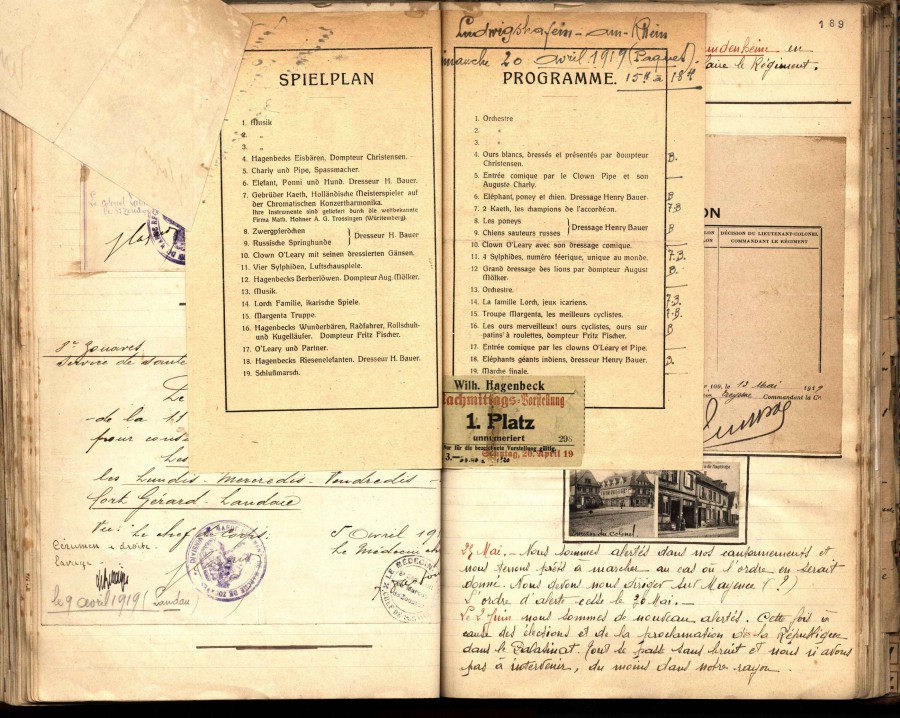 189
Ludwigshafen-am-Rhein
20 avril 1919 (Paques).
15H à 18H
SPIELPLAN
1. Musik
2. „
3. „
4. Hagenbecks Eisbären. Dompteur Christensen.
5. Charly und Pipe, Spassmacher.
6. Elefant, Ponni und Hund. Dresseur H. Bauer.
7. Gebrüder Kaeth, Holländische Meisterspieler auf
der Chromatischen Konzertharmonika.
Ihre Instrumente sind geliefert durch die weltbekannte
Firma Math. Hohner A. G. Trossingen (Württemberg).
8. Zwergpferdchen
9. Russische Springhunde
} Dresseur H. Bauer
10. Clown O'Leary mit seinen dressierten Gänsen.
11. Vier Sylphiden, Luftschauspiele.
12. Hagenbecks Berberlöwen. Dompteur Aug. Mölker.
13. Musik.
14. Lorch Familie, ikarische Spiele.
15. Margenta Truppe.
16. Hagenbecks Wunderbären, Radfahrer, Rollschuh-
und Kugelläufer. Dompteur Fritz Fischer.
17. O'Leary und Partner.
18. Hagenbecks Riesenelefanten. Dresseur H. Bauer.
19. Schlußmarsch.
PROGRAMME.
1. Orchestre
2. „
3. „
4. Ours blancs, dressés et présentés par dompteur
Christensen.
B.
5. Entrée comique par le Clown Pipe et son
Auguste Charly.
6. Eléphant, poney et chien. Dressage Henry Bauer
B
7. 2 Kaeth, les champions de l'accordéon.
T.B
8. Les poneys
9. Chiens sauteurs russes
} Dressage Henry Bauer
B
10. Clown O'Leary avec son dressage comique.
11. 4 Sylphides, numéro féerique, unique au monde.
T.B.
12. Grand dressage des lions par dompteur August
Mölker.
B.
13. Orchestre.
14. La famille Lorch, jeux icariens.
T.B.
15. Troupe Margenta, les meilleurs cyclistes.
T.B.
16. Les ours merveilleux! ours cyclistes, ours sur
patins à roulettes, dompteur Fritz Fischer.
B
17. Entrée comique par les clowns O'Leary et Pipe.
18. Eléphants géants indiens, dresseur Henry Bauer.
B.
19. Marche finale.
Wilh. Hagenbeck
Nachmittags-Vorstellung
1. Platz
unnumeriert
Nur für die bezeichnete Vorstellung gültig.
3.—
Sonntag, 20. April 19
en
faire le Régiment.
ON
DÉCISION DU LIEUTENANT-COLONEL
COMMANDANT LE RÉGIMENT
109, le 13 Mai 1919
Commandant la Cie
Zouaves
Service de Santé
de la 11
pour
Les
les Lundis - Mercredis - Vendredis -
Fort Gérard - Landau
Vu: Le Chef de Corps:
5 Avril 191
Le Médecin
Cérumen à droite.
Lavage.
le 9 avril 1919 (Landau)
LE MEDECIN
Maison du Colonel
27 Mai. - Nous sommes alertés dans nos cantonnements et
nous tenons prêts à marcher au cas où l'ordre en serait
donné. Nous devons nous diriger sur Mayence (?)
L'ordre d'alerte cesse le 30 Mai. -
Le 2 Juin nous sommes de nouveau alertés. Cette fois à
cause des élections et de la proclamation de la République
dans le Palatinat. Tout se passe sans bruit et nous n'avons
pas à intervenir, du moins dans notre rayon.